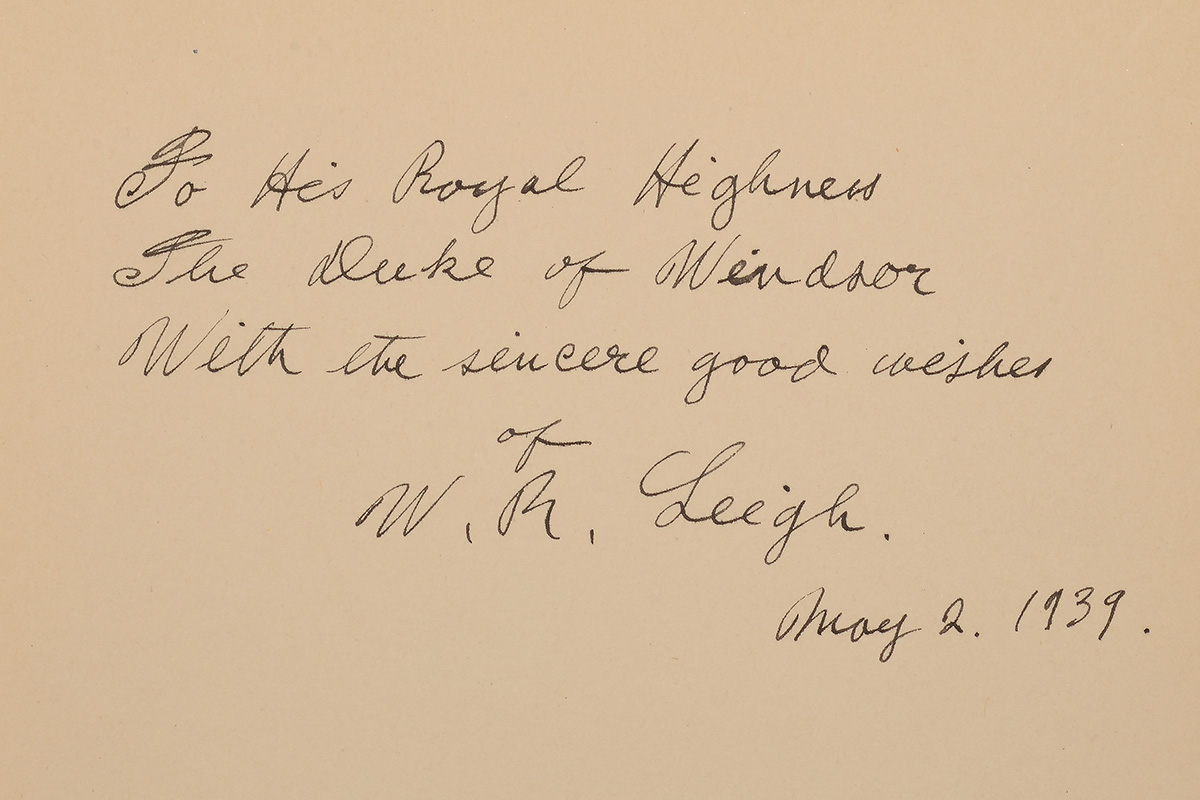 To His Royal Highness
The Duke of Windsor
With the sincere good wishes
of
W. R. Leigh.
May 2. 1939.